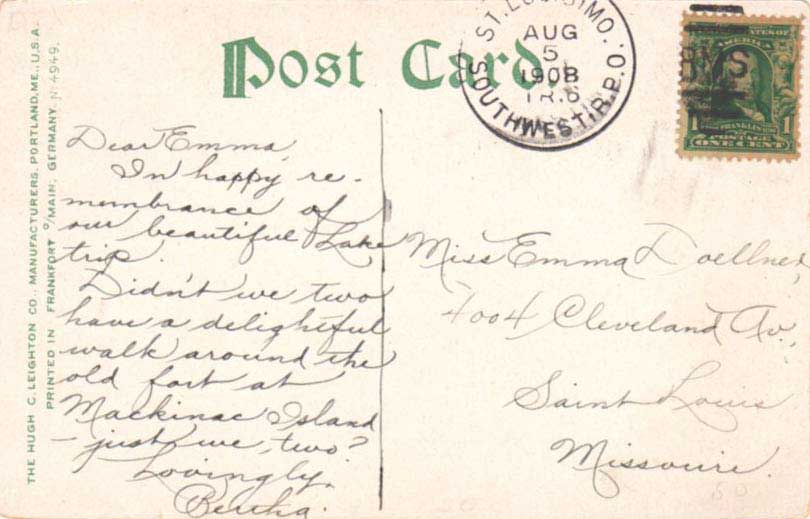 Post Card.
ST. LOUIS, MO.
AUG
5
1908
TR.6
SOUTHWEST. R.P.O.
RMS
FRANKLIN
POSTAGE
ONE CENT
1
THE HUGH C. LEIGHTON CO., MANUFACTURERS, PORTLAND, ME., U.S.A.
PRINTED IN FRANKFORT O/MAIN, GERMANY. No 4949.
Dear Emma,
In happy re-
membrance of
our beautiful Lake
trip.
Didn't we two
have a delightful
walk around the
old fort at
Mackinac Island
- just we, two?
Lovingly,
Bertha.
Miss Emma Doellner,
4004 Cleveland Av.,
Saint Louis
Missouri.